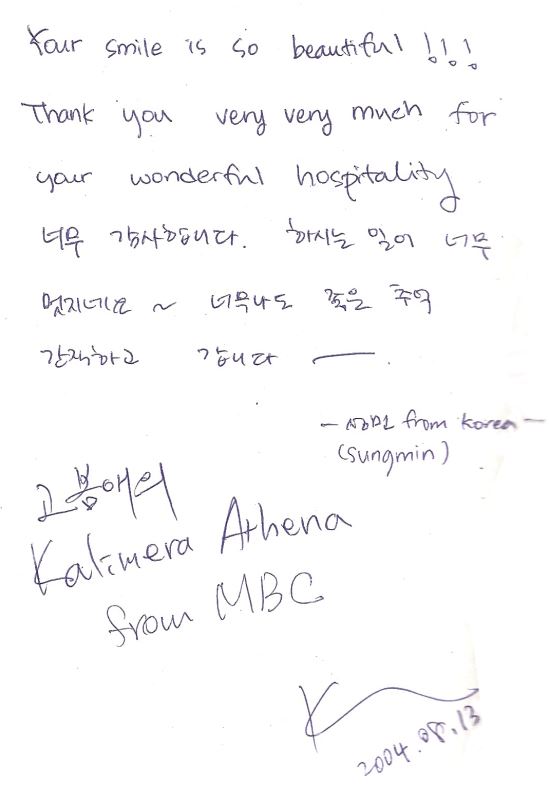 Your smile is so beautiful !!!
Thank you very very much for
your wonderful hospitality
너무 감사합니다. 하시는 일이 너무
멋지네요 ~ 너무나도 좋은 추억
간직하고 갑니다 ―.
- 성민 from Korea -
(sungmin)
Kalimera Athena
from MBC
2004.08.13